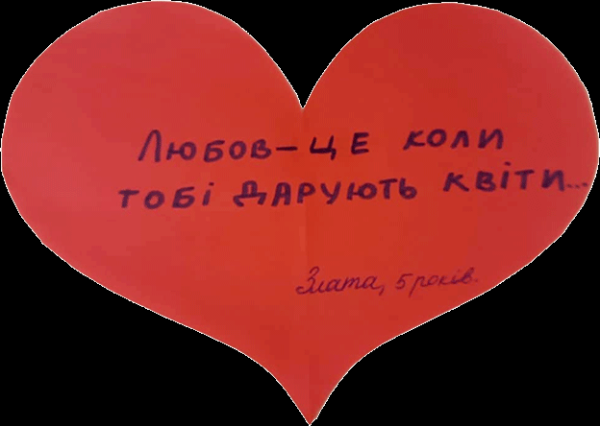 Любов – це коли
тобі дарують квіти...
Злата, 5 років.